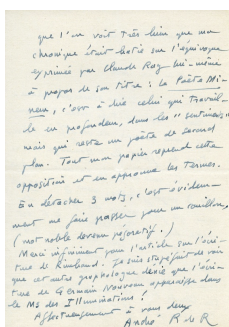 que l'on voit très bien que mon
chronique était bâtie sur l'équivoque
exprimée par Claude Roy lui-même
à propos de son titre : la Poète Mi-
neur, c'est à dire celui qui travail-
le en profondeur, dans les "
mais qui reste un poète de second
plan. Tout mon papier reprend cette
opposition et en approuve les termes.
En détacher 3 mots, c'est évidem-
ment me faire passer pour un couillon,
(mot noble devenu péjoratif.)
Merci infiniment pour l'article sur l'écri-
ture de Rimbaud. Je suis stupéfait de voir
que cet autre graphologue décèle que l'écri-
ture de Germain Nouveau apparaisse dans
le Ms des Illuminations !
Affectueusement à vous deux
André R de R